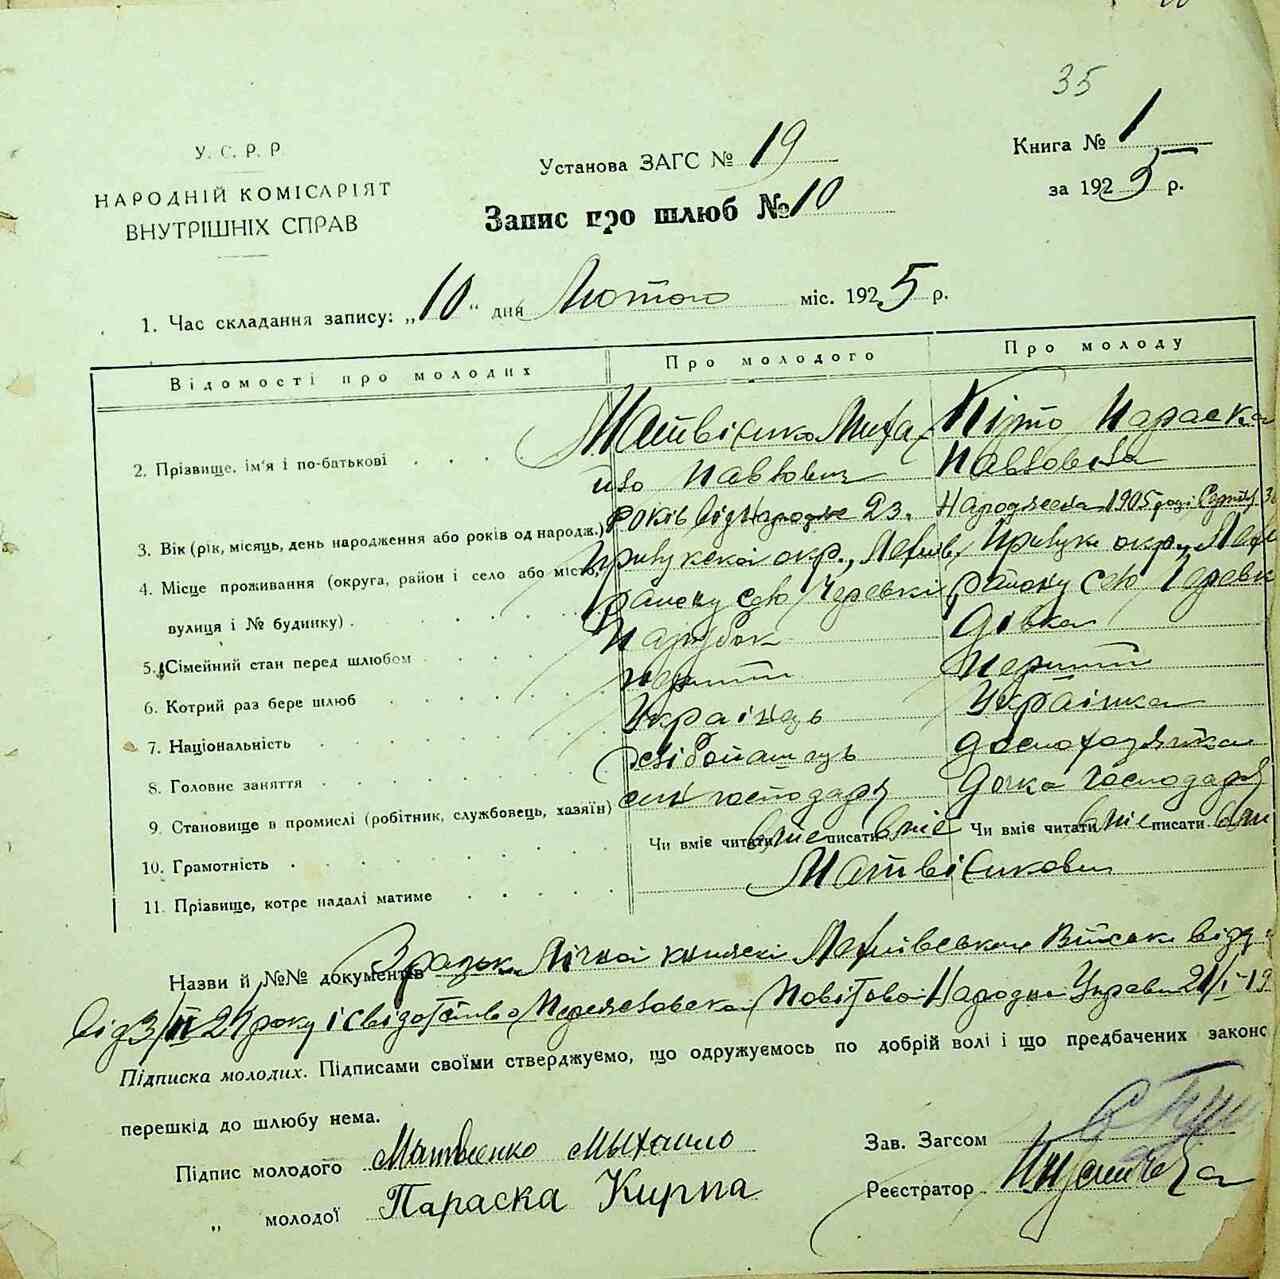 35
У. С. Р. Р.
НАРОДНІЙ КОМІСАРІЯТ
ВНУТРІШНІХ СПРАВ
Установа ЗАГС № 19
Запис про шлюб № 10
Книга № 1
за 1925 р.
1. Час складання запису: „10“ дня Лютого міс. 1925 р.
Відомості про молодих
Про молодого
Про молоду
2. Прізвище, ім'я і по-батькові
Матвієнко Миха
йло Павлович
Кірпо Параска
Павловна
3. Вік (рік, місяць, день народження або років од народж.)
років від народж 23.
Народжена 1905 році
4. Місце проживання (округа, район і село або місто,
вулиця і № будинку)
окр.,
району село
Прилук окр.,
району село
5. Сімейний стан перед шлюбом
Парубок
Дівка
6. Котрий раз бере шлюб
перший
перший
7. Національність
Українець
Українка
8. Головне заняття
хлібопашець
9. Становище в промислі (робітник, службовець, хазяїн)
син господаря
дочка господаря
10. Грамотність
Чи вміє читати вміє писати вміє
Чи вміє читати вміє писати вмі
11. Прізвище, котре надалі матиме
Назви й №№ документів книжки Військ
від 3/II 24 року і свідотство Повітової Народної Управи 21/I-19
Підписка молодих. Підписами своїми стверджуємо, що одружуємось по добрій волі і що предбачених законо
перешкід до шлюбу нема.
Підпис молодого Матвиенко Мыхаило
„ молодої Параска Кирпа
Зав. Загсом
Реєстратор